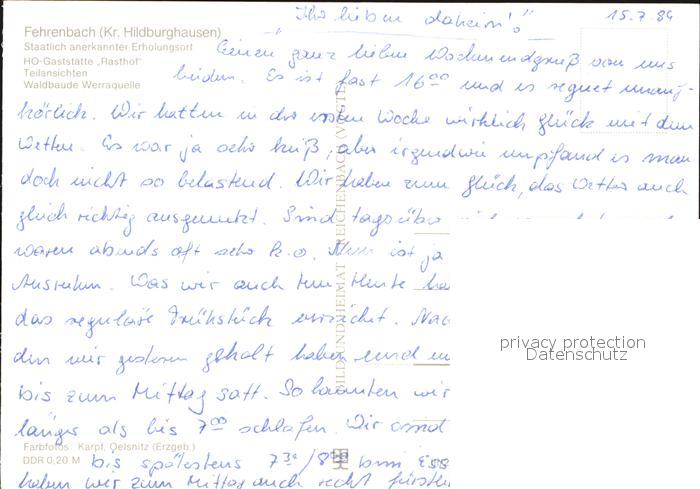 "Ihr lieben daheim!" 15.7.84
Fehrenbach (Kr. Hildburghausen)
Staatlich anerkannter Erholungsort
HO-Gaststätte „Rasthof"
Teilansichten
Waldbaude Werraquelle
Einen ganz lieben Wochenendgruß von uns
beiden. Es ist fast 16⁰⁰ und es regnet unauf-
hörlich. Wir hatten in der ersten Woche wirklich Glück mit dem
Wetter. Es war ja sehr heiß, aber irgendwie empfand es man
doch nicht so belastend. Wir haben zum Glück, das Wetter auch
richtig ausgenutzt. Sind tagsüber
waren abends oft sehr k.o. Nun ist ja
Ausruhen. Was wir auch tun. Heute
das reguläre Frühstück verzichtet.
den wir gestern geholt haben und
bis zum Mittag satt. So konnten wir
länger als bis 7⁰⁰ schlafen. Wir
bis spätestens 7³⁰/8⁰⁰ beim
haben wir zum Mittag auch recht
Farbfotos: Karpf, Oelsnitz (Erzgeb.)
DDR 0,20 M
BILD UND HEIMAT REICHENBACH (VOGTL)
privacy protection
Datenschutz